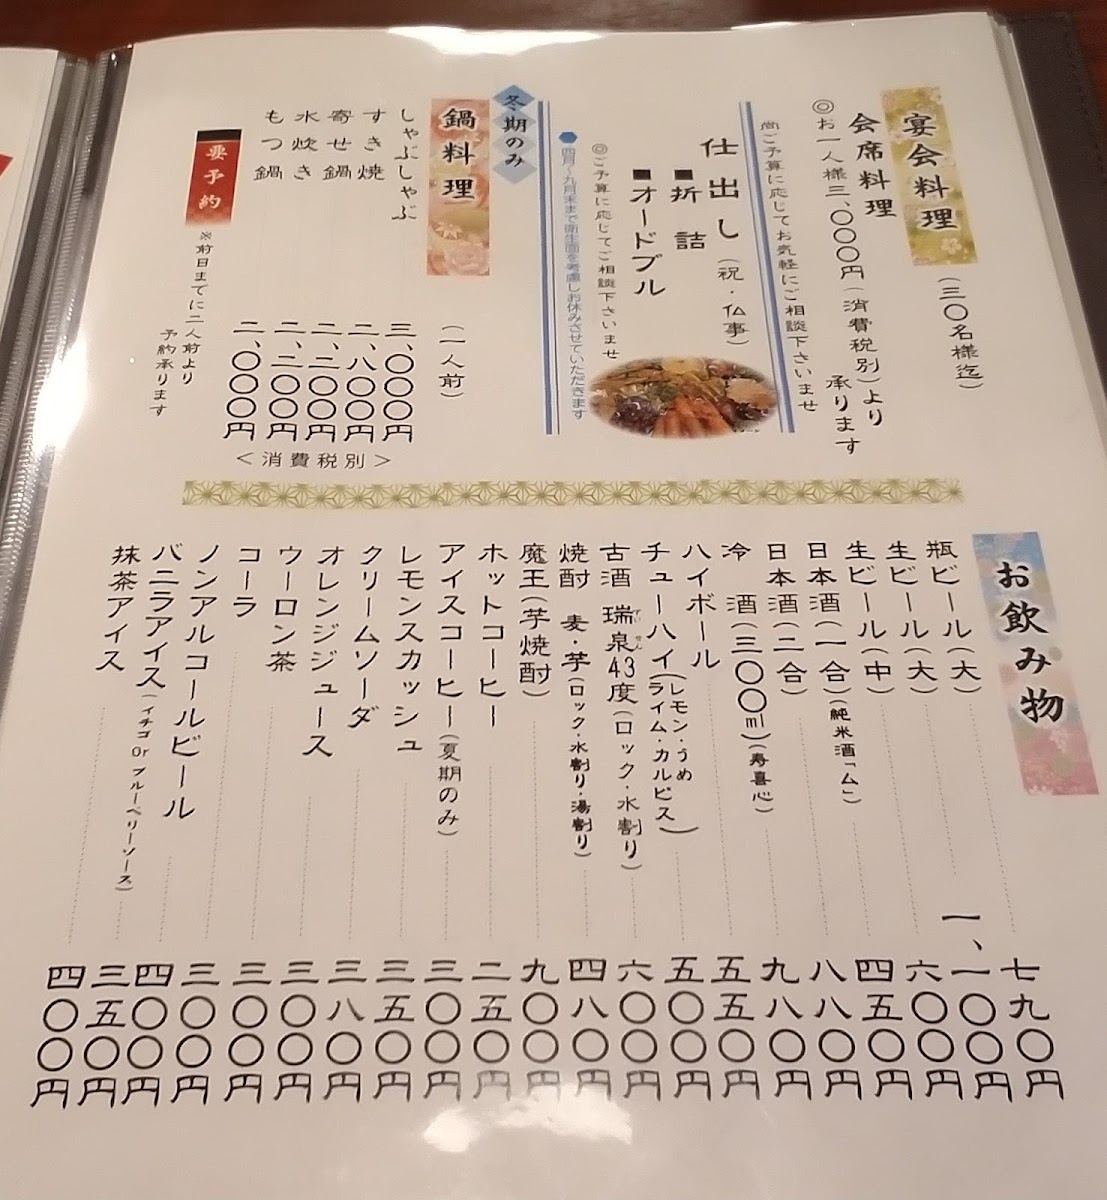 宴会料理(三〇名様迄)
会席料理
◎お一人様三、〇〇〇円(消費税別)より
承ります
尚ご予算に応じてお気軽にご相談下さいませ
仕出し(祝・仏事)
■折詰
■オードブル
◎ご予算に応じてご相談下さいませ
四月〜九月末まで衛生面を考慮しお休みさせていただきます
冬期のみ
鍋料理(一人前)
しゃぶしゃぶ 三、〇〇〇円
すき焼 二、八〇〇円
寄せ鍋 二、二〇〇円
水炊き 二、二〇〇円
もつ鍋 二、〇〇〇円
<消費税別>
要予約
※前日までに二人前より
予約承ります
お飲み物
瓶ビール(大) 七九〇円
生ビール(大) 一、一〇〇円
生ビール(中) 六〇〇円
日本酒(一合)(純米酒「ム」) 四五〇円
日本酒(二合) 八八〇円
冷酒(三〇〇ml)(寿喜心) 九八〇円
ハイボール 五五〇円
チューハイ(レモン・うめ ライム・カルピス) 五〇〇円
古酒 瑞泉43度(ロック・水割り) 六〇〇円
焼酎 麦・芋(ロック・水割り・湯割り) 四八〇円
魔王(芋焼酎) 九〇〇円
ホットコーヒー 二五〇円
アイスコーヒー(夏期のみ) 三〇〇円
レモンスカッシュ 三五〇円
クリームソーダ 三八〇円
オレンジジュース 三〇〇円
ウーロン茶 三〇〇円
コーラ 三〇〇円
ノンアルコールビール 四〇〇円
バニラアイス(イチゴ or ブルーベリーソース) 三五〇円
抹茶アイス 四〇〇円